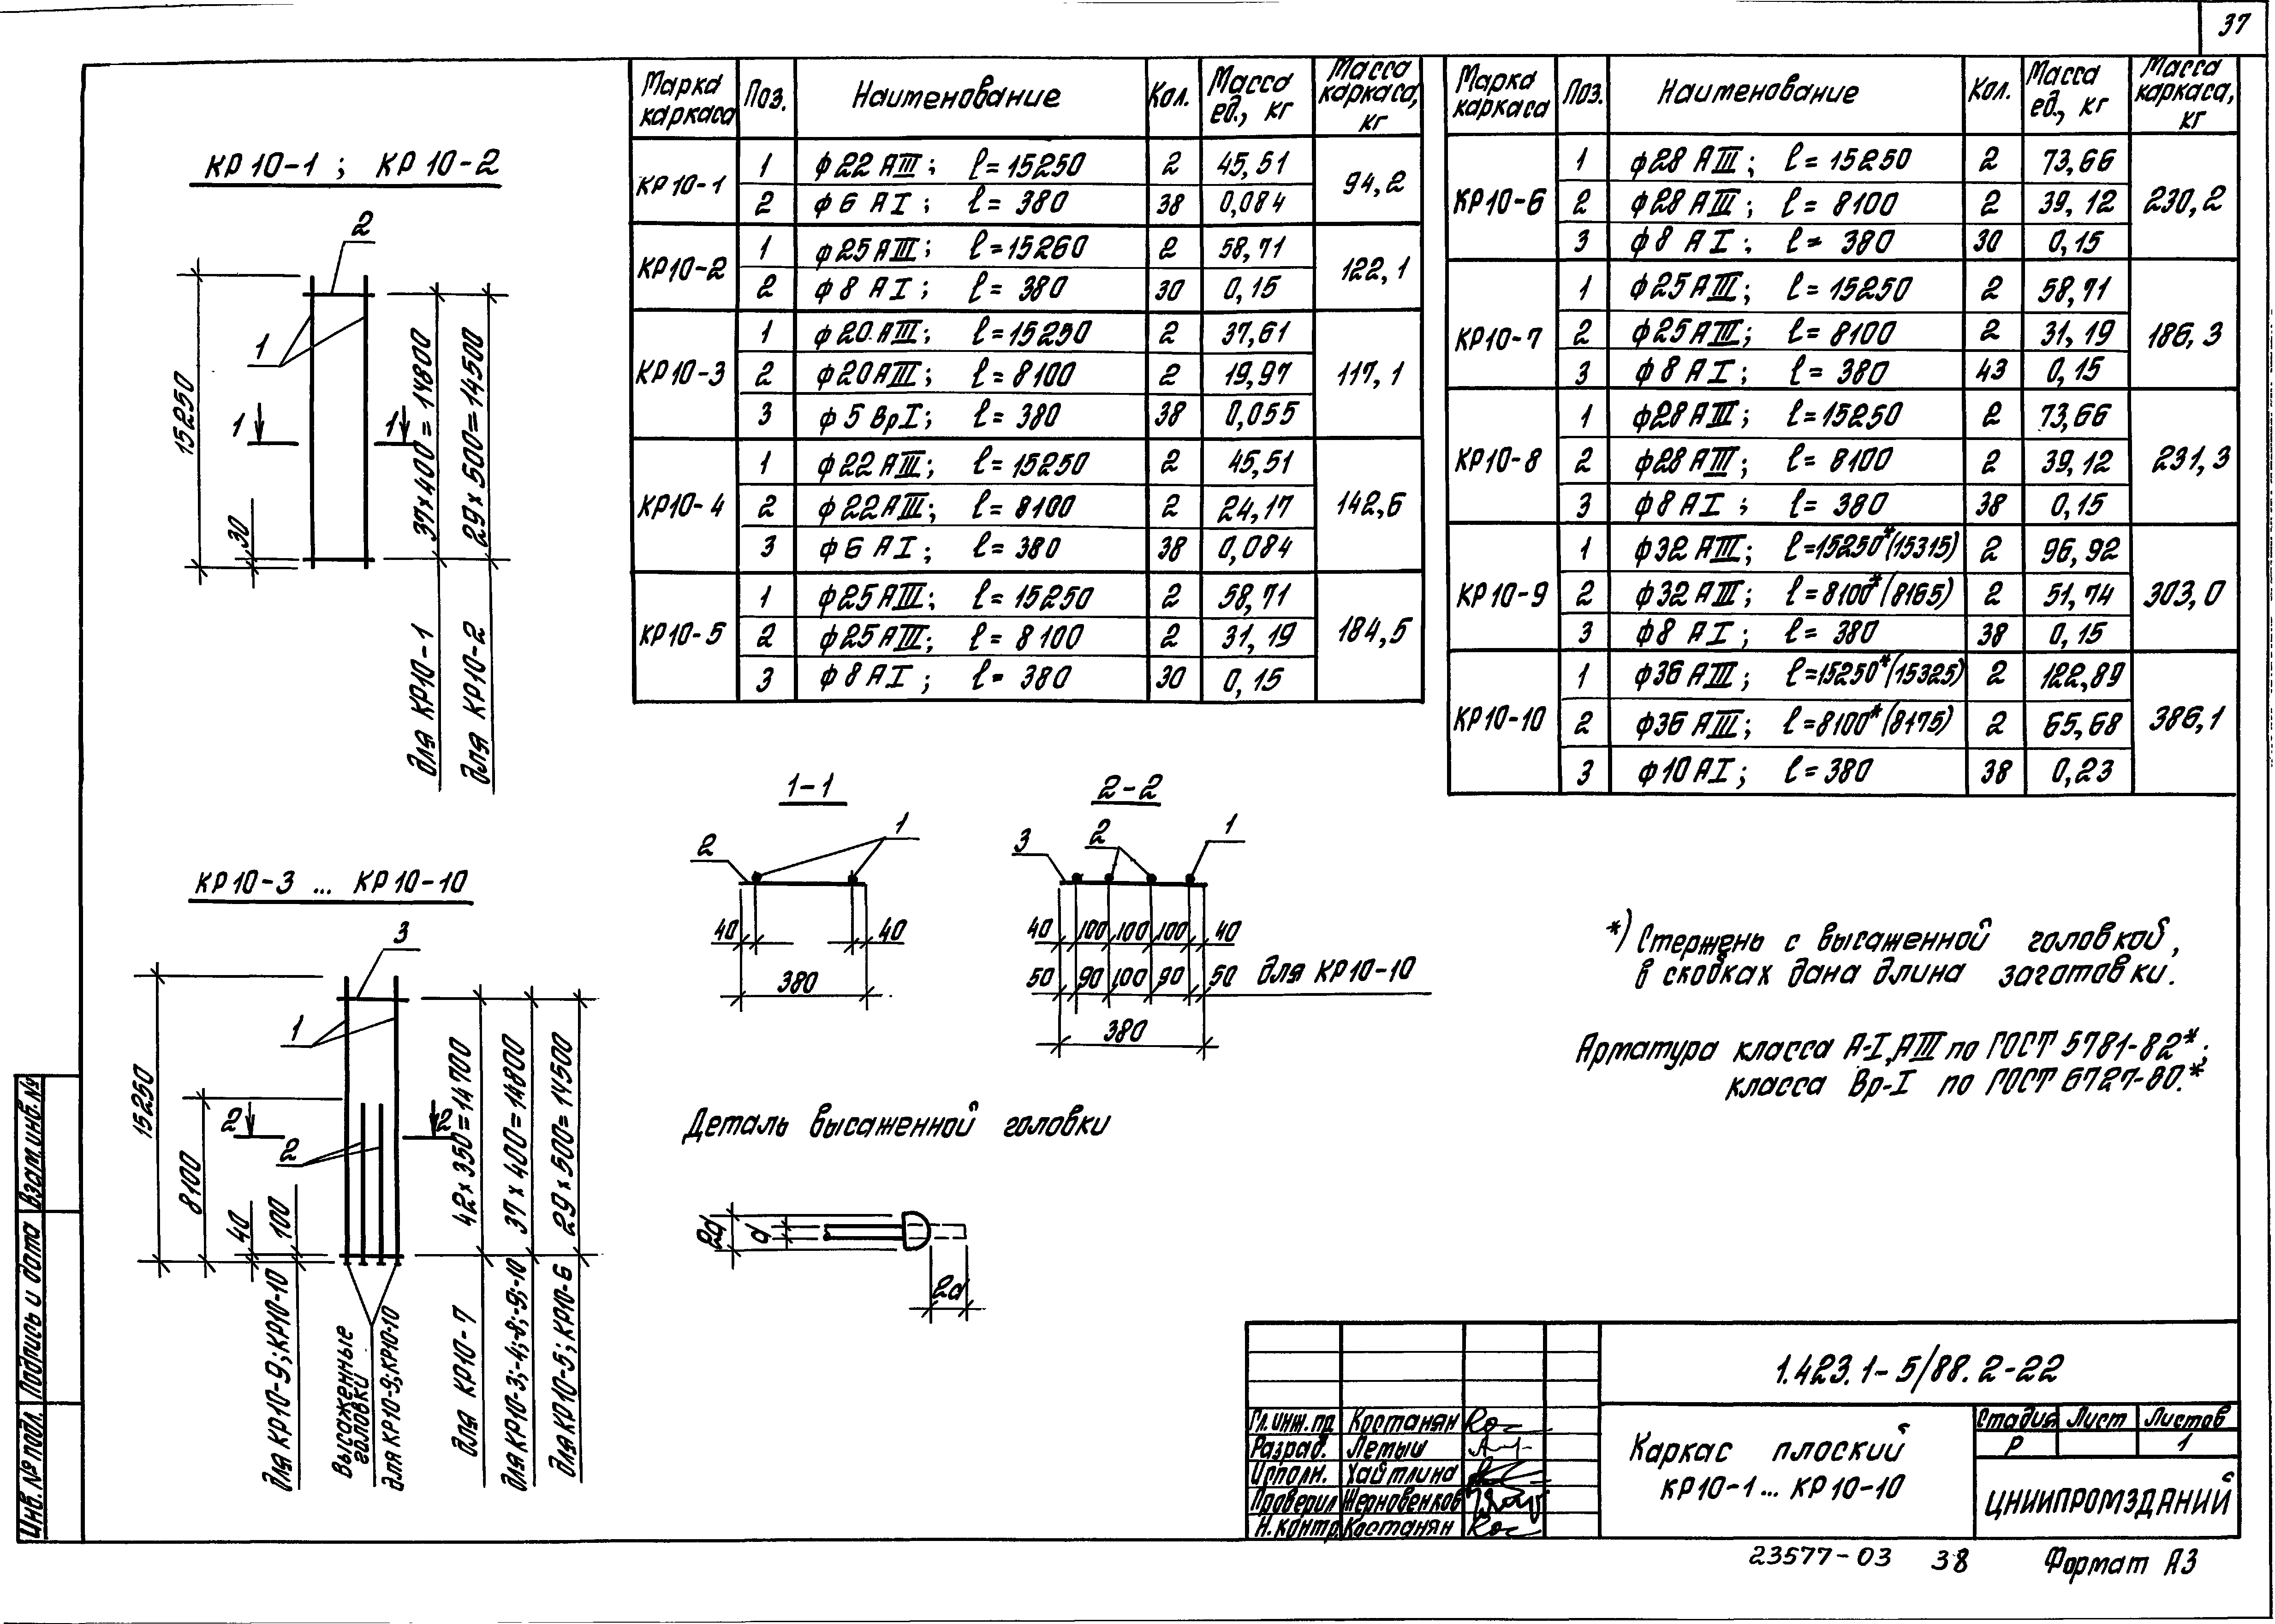 37
КР10-1 ; КР10-2
2
1
15250
1 1
30
37×400=14800
29×500=14500
для КР10-1
для КР10-2
Марка каркаса Поз. Наименование Кол. Масса ед., кг Масса каркаса, кг
КР10-1 1 ф22 АIII; l=15250 2 45,51 94,2
2 ф6 АI; l=380 38 0,084
КР10-2 1 ф25 АIII; l=15260 2 58,71 122,1
2 ф8 АI; l=380 30 0,15
КР10-3 1 ф20 АIII; l=15250 2 37,61 117,1
2 ф20 АIII; l=8100 2 19,97
3 ф5 ВрI; l=380 38 0,055
КР10-4 1 ф22 АIII; l=15250 2 45,51 142,6
2 ф22 АIII; l=8100 2 24,17
3 ф6 АI; l=380 38 0,084
КР10-5 1 ф25 АIII; l=15250 2 58,71 184,5
2 ф25 АIII; l=8100 2 31,19
3 ф8 АI; l=380 30 0,15
Марка каркаса Поз. Наименование Кол. Масса ед., кг Масса каркаса, кг
КР10-6 1 ф28 АIII; l=15250 2 73,66 230,2
2 ф28 АIII; l=8100 2 39,12
3 ф8 АI; l=380 30 0,15
КР10-7 1 ф25 АIII; l=15250 2 58,71 186,3
2 ф25 АIII; l=8100 2 31,19
3 ф8 АI; l=380 43 0,15
КР10-8 1 ф28 АIII; l=15250 2 73,66 231,3
2 ф28 АIII; l=8100 2 39,12
3 ф8 АI; l=380 38 0,15
КР10-9 1 ф32 АIII; l=15250*(15315) 2 96,92 303,0
2 ф32 АIII; l=8100*(8165) 2 51,74
3 ф8 АI; l=380 38 0,15
КР10-10 1 ф36 АIII; l=15250*(15325) 2 122,89 386,1
2 ф36 АIII; l=8100*(8175) 2 65,68
3 ф10 АI; l=380 38 0,23
КР10-3 ... КР10-10
3
1
15250
8100
2 2
2
40
100
42×350=14700
37×400=14800
29×500=14500
для КР10-9; КР10-10
Высаженные головки
для КР10-9; КР10-10
для КР10-7
для КР10-3;-4;-8;-9;-10
для КР10-5; КР10-6
1-1
2 1
40 40
380
2-2
3 2 1
40 100 100 100 40
50 90 100 90 50 для КР10-10
380
Деталь высаженной головки
2d d
2d
*) Стержень с высаженной головкой,
в скобках дана длина заготовки.
Арматура класса А-I, АIII по ГОСТ 5781-82*;
класса Вр-I по ГОСТ 6727-80.*
Взам.инв.№
Подпись и дата
Инв.№ подл.
1.423.1-5/88.2-22
Гл.инж.пр Костанян
Разраб. Летыш
Исполн. Хайтлина
Проверил Жерновенков
Н.контр. Костанян
Каркас плоский
КР10-1... КР10-10
Стадия Лист Листов
Р 1
ЦНИИПРОМЗДАНИЙ
23577-03 38 Формат А3